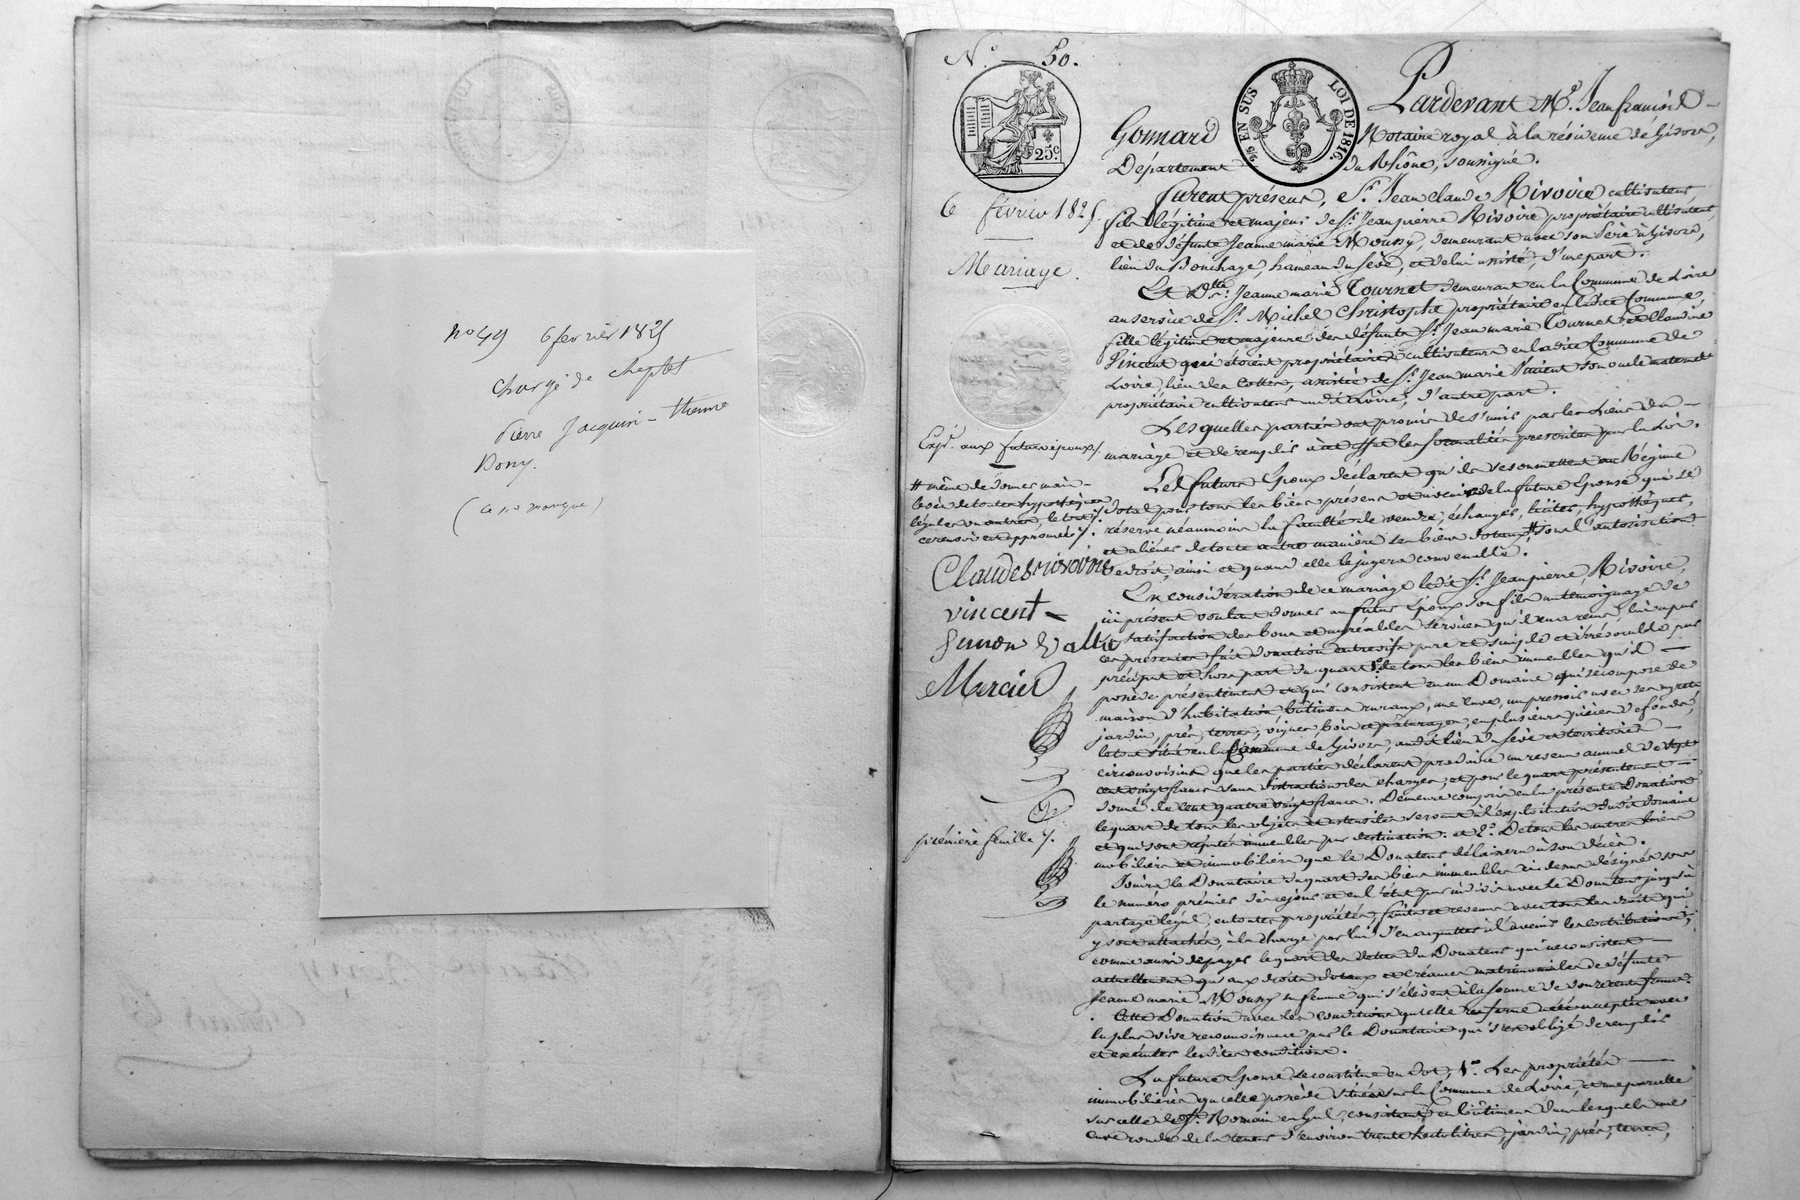 n° 49 6 février 1825
chargé de cheptel
Pierre Jacquin - thienne
Dony.
(ce n° manque)
N.° 50.
25c
2/5 EN SUS LOI DE 1816
Pardevant Me. Jean françois
Gonnard Notaire royal à la résidence de Givors,
Département du Rhône, soussigné.
6 février 1825.
Mariage.
furent présens, Sr. Jean claude Rivoire cultivateur
fils légitime et majeur de Sr. Jean pierre Rivoire propriétaire cultivateur,
et de défunte Jeanne marie Moussy, demeurant avec son Père à Givors,
lieu du Bouchage, hameau du fève, et de lui assisté, d'une part.
Et Dlle. Jeanne marie Tournet demeurant en la Commune de Loire
au service de Sr. Michel Christophe propriétaire en ladite Commune,
fille légitime et majeure des défunts Sr. Jean marie Tournet et Claudine
Vincent qui étoient propriétaires cultivateurs en ladite Commune de
Loire, lieu des Cottes, assistée de Sr. Jean marie Vincent son oncle maternel
propriétaire cultivateur audit Loire, d'autre part.
Lesquelles parties ont promis de s'unir par les liens du
mariage et de remplir à cet effet les formalités prescrites par la Loi.
Les futurs Epoux déclarent qu'ils se soumettent au Régime
dotal pour tous les biens présens et avenir de la future Epouse qui se
réserve néanmoins la faculté de vendre, échanger, liciter, hypothéquer,
et aliéner de toute autre manière ses biens dotaux, # sous l'autorisation
de droit, ainsi et quand elle le jugera convenable.
Expé. aux futurs époux /.
# même de donner main-
levée de toutes hypothèques
légales ou autres, le tout /.
ce renvoi est approuvé /.
Claude Rivoire
vincent
Simon Vallé
Mercier
première feuille /.
En considération de ce mariage ledit Sr. Jean pierre Rivoire,
ici présent voulant donner au futur Epoux son fils un témoignage de
satisfaction des bons et agréables services qu'il en a reçus, lui a par
ces présentes fait donation entrevifs pure et simple et irrévocable par
préciput et hors part du quart 1°. de tous les biens immeubles qu'il
possède présentement et qui consistent en un Domaine qui se compose de
maison d'habitation bâtimens ruraux, une Cuve, un pressoir avec ses agrets
jardin, prés, terres, vignes, bois et pâturages, en plusieurs pièces de fonds,
le tout situé en la Commune de Givors, audit lieu du fève et territoires
circonvoisins que les parties déclarent produire un revenu annuel de sept
cent vingt francs sans distraction des charges, et pour le quart présentement
donné de Cent quatre vingt francs. Demeure compris en la présente Donation
le quart de tous les objets et ustensiles servant à l'exploitation dudit domaine
et qui sont réputés immeubles par destination. et 2°. De tous les autres biens
mobiliers et immobiliers que le Donateur délaissera à son décès.
Jouira le Donataire du quart des biens immeubles ci dessus désignés sous
le numéro premier dès ce jour et en l'état par indivis avec le Donateur jusqu'à
partage légal, en toutes propriétés, fruits et revenus avec tous les droits qui
y sont attachés, à la charge par lui d'en acquitter à l'avenir les contributions,
comme aussi de payer le quart des dettes du Donateur qui ne consistent
actuellement qu'aux droits dotaux et créances matrimoniales de défunte
Jeanne marie Moussy sa femme qui s'élèvent à la somme de douze cent francs.
Cette Donation avec les conditions qu'elle renferme a été acceptée avec
la plus vive reconnoissance par le Donataire qui s'est obligé de remplir
et exécuter lesdites conditions.
La future Epouse se constitue en dot, 1°. Les propriétés
immobilières qu'elle possède situées sur la Commune de Loire, et une parcelle
sur celle de St. Romain en Gal, consistant en bâtimens dans lesquels une
cuve ronde de la teneur d'environ trente hectolitres, jardin, prés, terres,